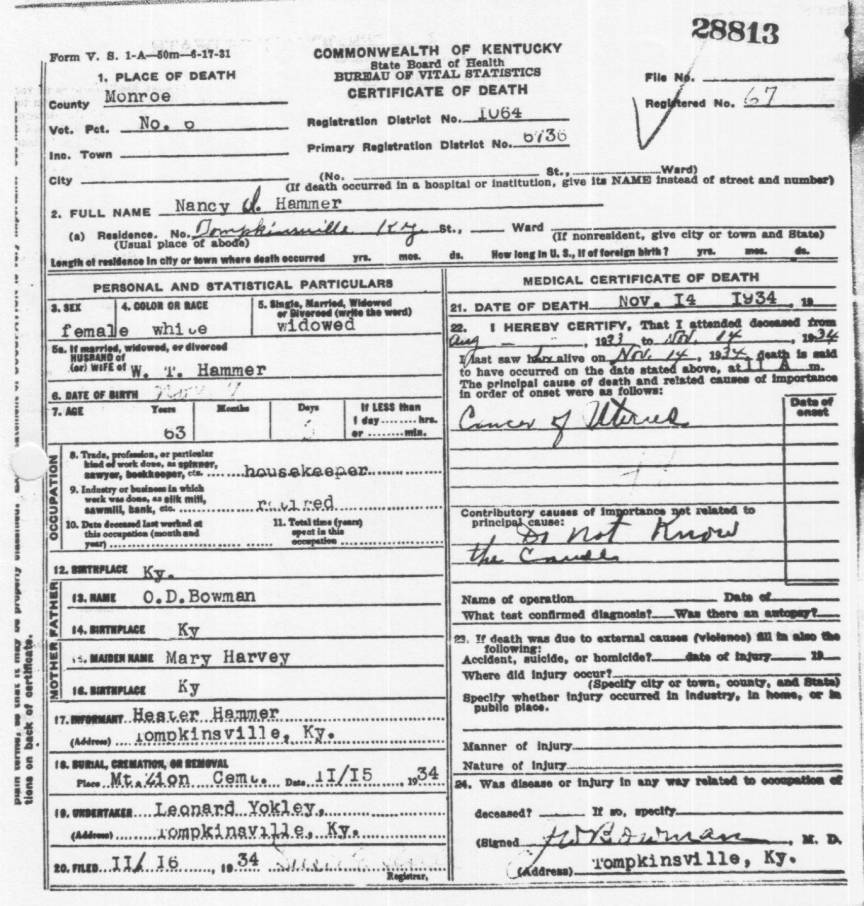 28813
Form V. S. 1-A—50m—6-17-31
COMMONWEALTH OF KENTUCKY
State Board of Health
BUREAU OF VITAL STATISTICS
CERTIFICATE OF DEATH
1. PLACE OF DEATH
County Monroe
Vot. Pct. No. 6
Inc. Town
City
Registration District No. 1064
Primary Registration District No. 6736
File No.
Registered No. 67
(No. St., Ward)
(If death occurred in a hospital or institution, give its NAME instead of street and number)
2. FULL NAME Nancy Hammer
(a) Residence. No. Tompkinsville Ky. St., Ward
(Usual place of abode) (If nonresident, give city or town and State)
Length of residence in city or town where death occurred yrs. mos. ds. How long in U. S., if of foreign birth? yrs. mos. ds.
PERSONAL AND STATISTICAL PARTICULARS
3. SEX 4. COLOR OR RACE 5. Single, Married, Widowed
or Divorced (write the word)
female white widowed
5a. If married, widowed, or divorced
HUSBAND of
(or) WIFE of W. T. Hammer
6. DATE OF BIRTH Nov 7
7. AGE Years Months Days If LESS than
1 day hrs.
or min.
63
8. Trade, profession, or particular
kind of work done, as spinner,
sawyer, bookkeeper, etc. housekeeper
9. Industry or business in which
work was done, as silk mill,
sawmill, bank, etc. retired
10. Date deceased last worked at
this occupation (month and
year)
11. Total time (years)
spent in this
occupation
OCCUPATION
12. BIRTHPLACE Ky.
FATHER
13. NAME O.D.Bowman
14. BIRTHPLACE Ky
MOTHER
15. MAIDEN NAME Mary Harvey
16. BIRTHPLACE Ky
17. INFORMANT Hester Hammer
(Address) Tompkinsville, Ky.
18. BURIAL, CREMATION, OR REMOVAL
Place Mt.Zion Cem. Date 11/15 , 1934
19. UNDERTAKER Leonard Yokley,
(Address) Tompkinsville, Ky.
20. FILED 11/ 16 , 1934
Registrar,
MEDICAL CERTIFICATE OF DEATH
21. DATE OF DEATH Nov. 14 1934 , 19
22. I HEREBY CERTIFY, That I attended deceased from
Aug - - , 1933 to Nov. 14 , 1934
I last saw her alive on Nov. 14 , 1934, death is said
to have occurred on the date stated above, at 11 A m.
The principal cause of death and related causes of importance
in order of onset were as follows:
Date of
onset
Cancer of Uterus
Contributory causes of importance not related to
principal cause:
Do not Know
the Cause
Name of operation Date of
What test confirmed diagnosis? Was there an autopsy?
23. If death was due to external causes (violence) fill in also the
following:
Accident, suicide, or homicide? date of injury 19
Where did injury occur?
(Specify city or town, county, and State)
Specify whether injury occurred in industry, in home, or in
public place.
Manner of injury
Nature of injury
24. Was disease or injury in any way related to occupation of
deceased? If so, specify
(Signed Bowman , M. D.
Tompkinsville, Ky.
(Address)
plain terms, so that it may be properly classified.
tions on back of certificate.